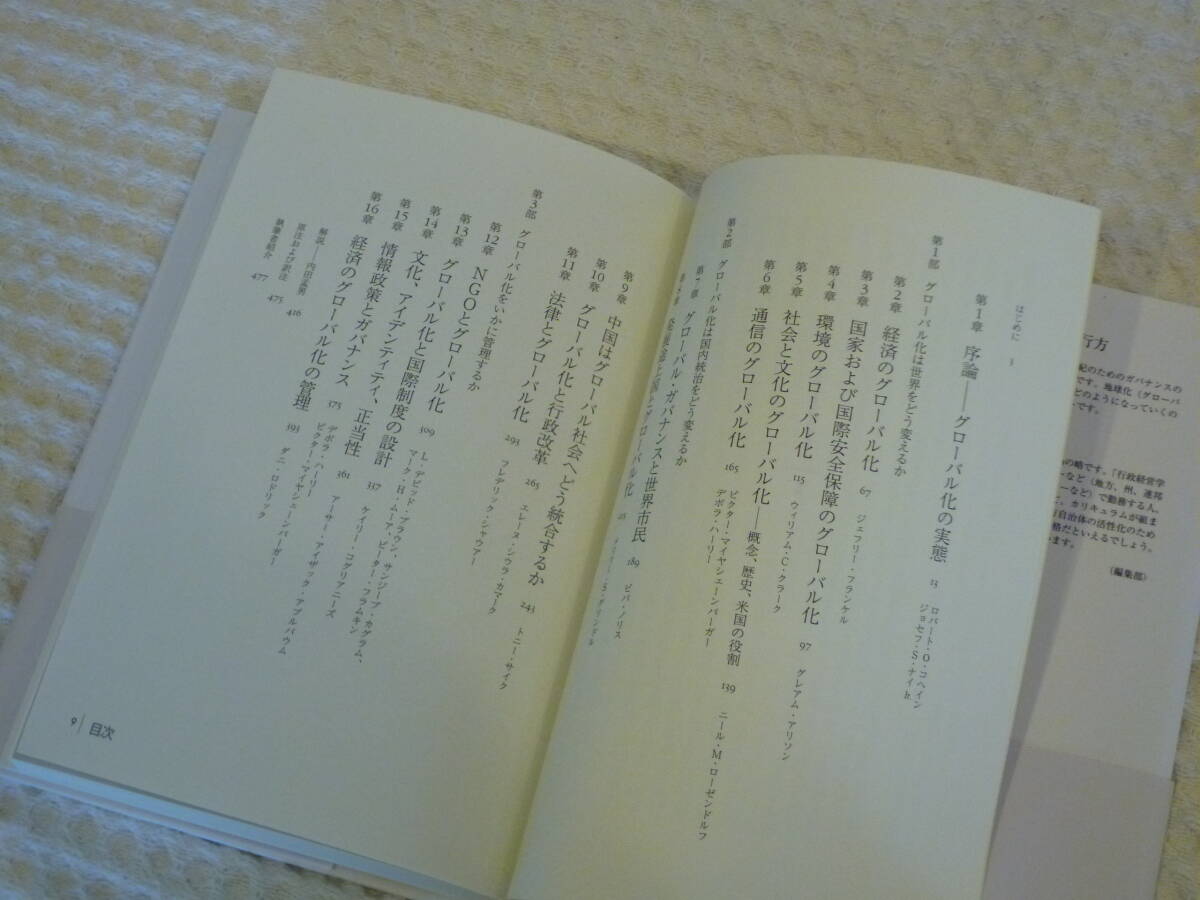 はじめに 3
第1章 序論――グローバル化の実態 13 ロバート・O・コヘイン
ジョセフ・S・ナイ Jr.
第1部 グローバル化は世界をどう変えるか
第2章 経済のグローバル化 67 ジェフリー・フランケル
第3章 国家および国際安全保障のグローバル化 97 グレアム・アリソン
第4章 環境のグローバル化 115 ウィリアム・C・クラーク
第5章 社会と文化のグローバル化――概念、歴史、米国の役割 139 ニール・M・ローゼンドルフ
第6章 通信のグローバル化 165 ビクター・マイヤシェーンバーガー
デボラ・ハーリー
第2部 グローバル化は国内統治をどう変えるか
第7章 グローバル・ガバナンスと世界市民 189 ピパ・ノリス
第8章 発展途上国とグローバル化 ・S・グリンドル
第9章 中国はグローバル社会へどう統合するか 243 トニー・サイク
第10章 グローバル化と行政改革 265 エレーヌ・シウラ・カマーク
第11章 法律とグローバル化 293 フレデリック・シャウアー
第3部 グローバル化をいかに管理するか
第12章 NGOとグローバル化 309 L・デビッド・ブラウン、サンジーブ・カグラム、
マーク・H・ムーア、ピーター・フラムキン
第13章 グローバル化と国際制度の設計 337 ケイリー・コグリアニーズ
第14章 文化、アイデンティティ、正当性 361 アーサー・アイザック・アプルバウム
第15章 情報政策とガバナンス 375 デボラ・ハーリー
ビクター・マイヤシェーンバーガー
第16章 経済のグローバル化の管理 393 ダニ・ロドリック
解説――内田孟男 416
原注および訳注 475
執筆者紹介 477
9 目次
行方
紀のためのガバナンスの
です。地球化（グローバ
どのようになっていくの
です。
の略です。「行政経営学
ーなど（地方、州、連邦
ーなど）で勤務する人、
て、カリキュラムが組ま
自治体の活性化のため
格だといえるでしょう。
います。
（編集部）